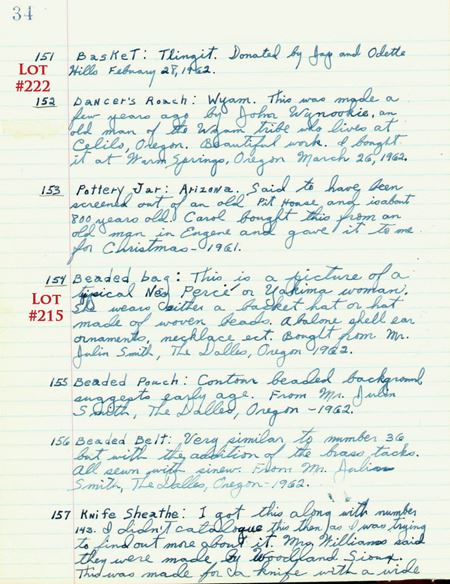 34
151 Basket: Tlingit. Donated by Jay and Odette
Hills February 28, 1962.
LOT
#222
152 Dancer's Roach: Wyam. This was made a
few years ago by John Wynookie, an
old man of the Wyam tribe who lives at
Celilo, Oregon. Beautiful work. I bought
it at Warm Springs, Oregon March 26, 1962.
153 Pottery Jar: Arizona. Said to have been
screened out of an old Pit House and is about
800 years old. Carol bought this from an
old man in Eugene and gave it to me
for Christmas - 1961.
154 Beaded bag: This is a picture of a
tipical Nez Percé or Yakima woman.
LOT
#215
She wears either a basket hat or hat
made of woven beads. Abalone shell ear
ornaments, necklace ect. Bought from Mr.
Julin Smith, The Dalles, Oregon 1962.
155 Beaded Pouch: Contour beaded background
suggests early age. From Mr. Julin
Smith, The Dalles, Oregon - 1962.
156 Beaded Belt: Very similar to number 36
but with the addition of the brass tacks.
All sewn with sinew. From Mr. Julin
Smith, The Dalles, Oregon - 1962.
157 Knife Sheathe: I got this along with number
143. I didn't catalogue this then as I was trying
to find out more about it. Mrs Williams said
they were made by Woodland Sioux.
This was made for a knife with a wide